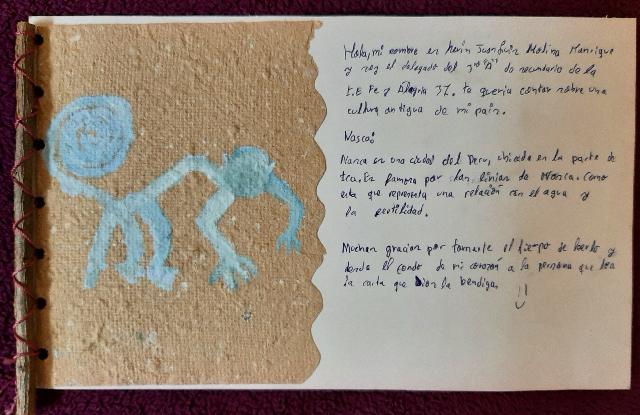 Hola, mi nombre es Kevin Juanfair Molina Manrique
y soy el delegado del 3ro "A" de secundaria de la
I.E Fe y Alegria 37. te queria contar sobre una
cultura antigua de mi pais.
Nasca:
Nasca es una ciudad del Peru, ubicada en la parte de
Ica. Es famosa por las linias de Nasca. Como
esta que representa una relación con el agua y
la fertilidad.
Muchas gracias por tomarte el tiempo de leerlo y
desde el fondo de mi corazón a la persona que lea
la carta que Dios la bendiga.